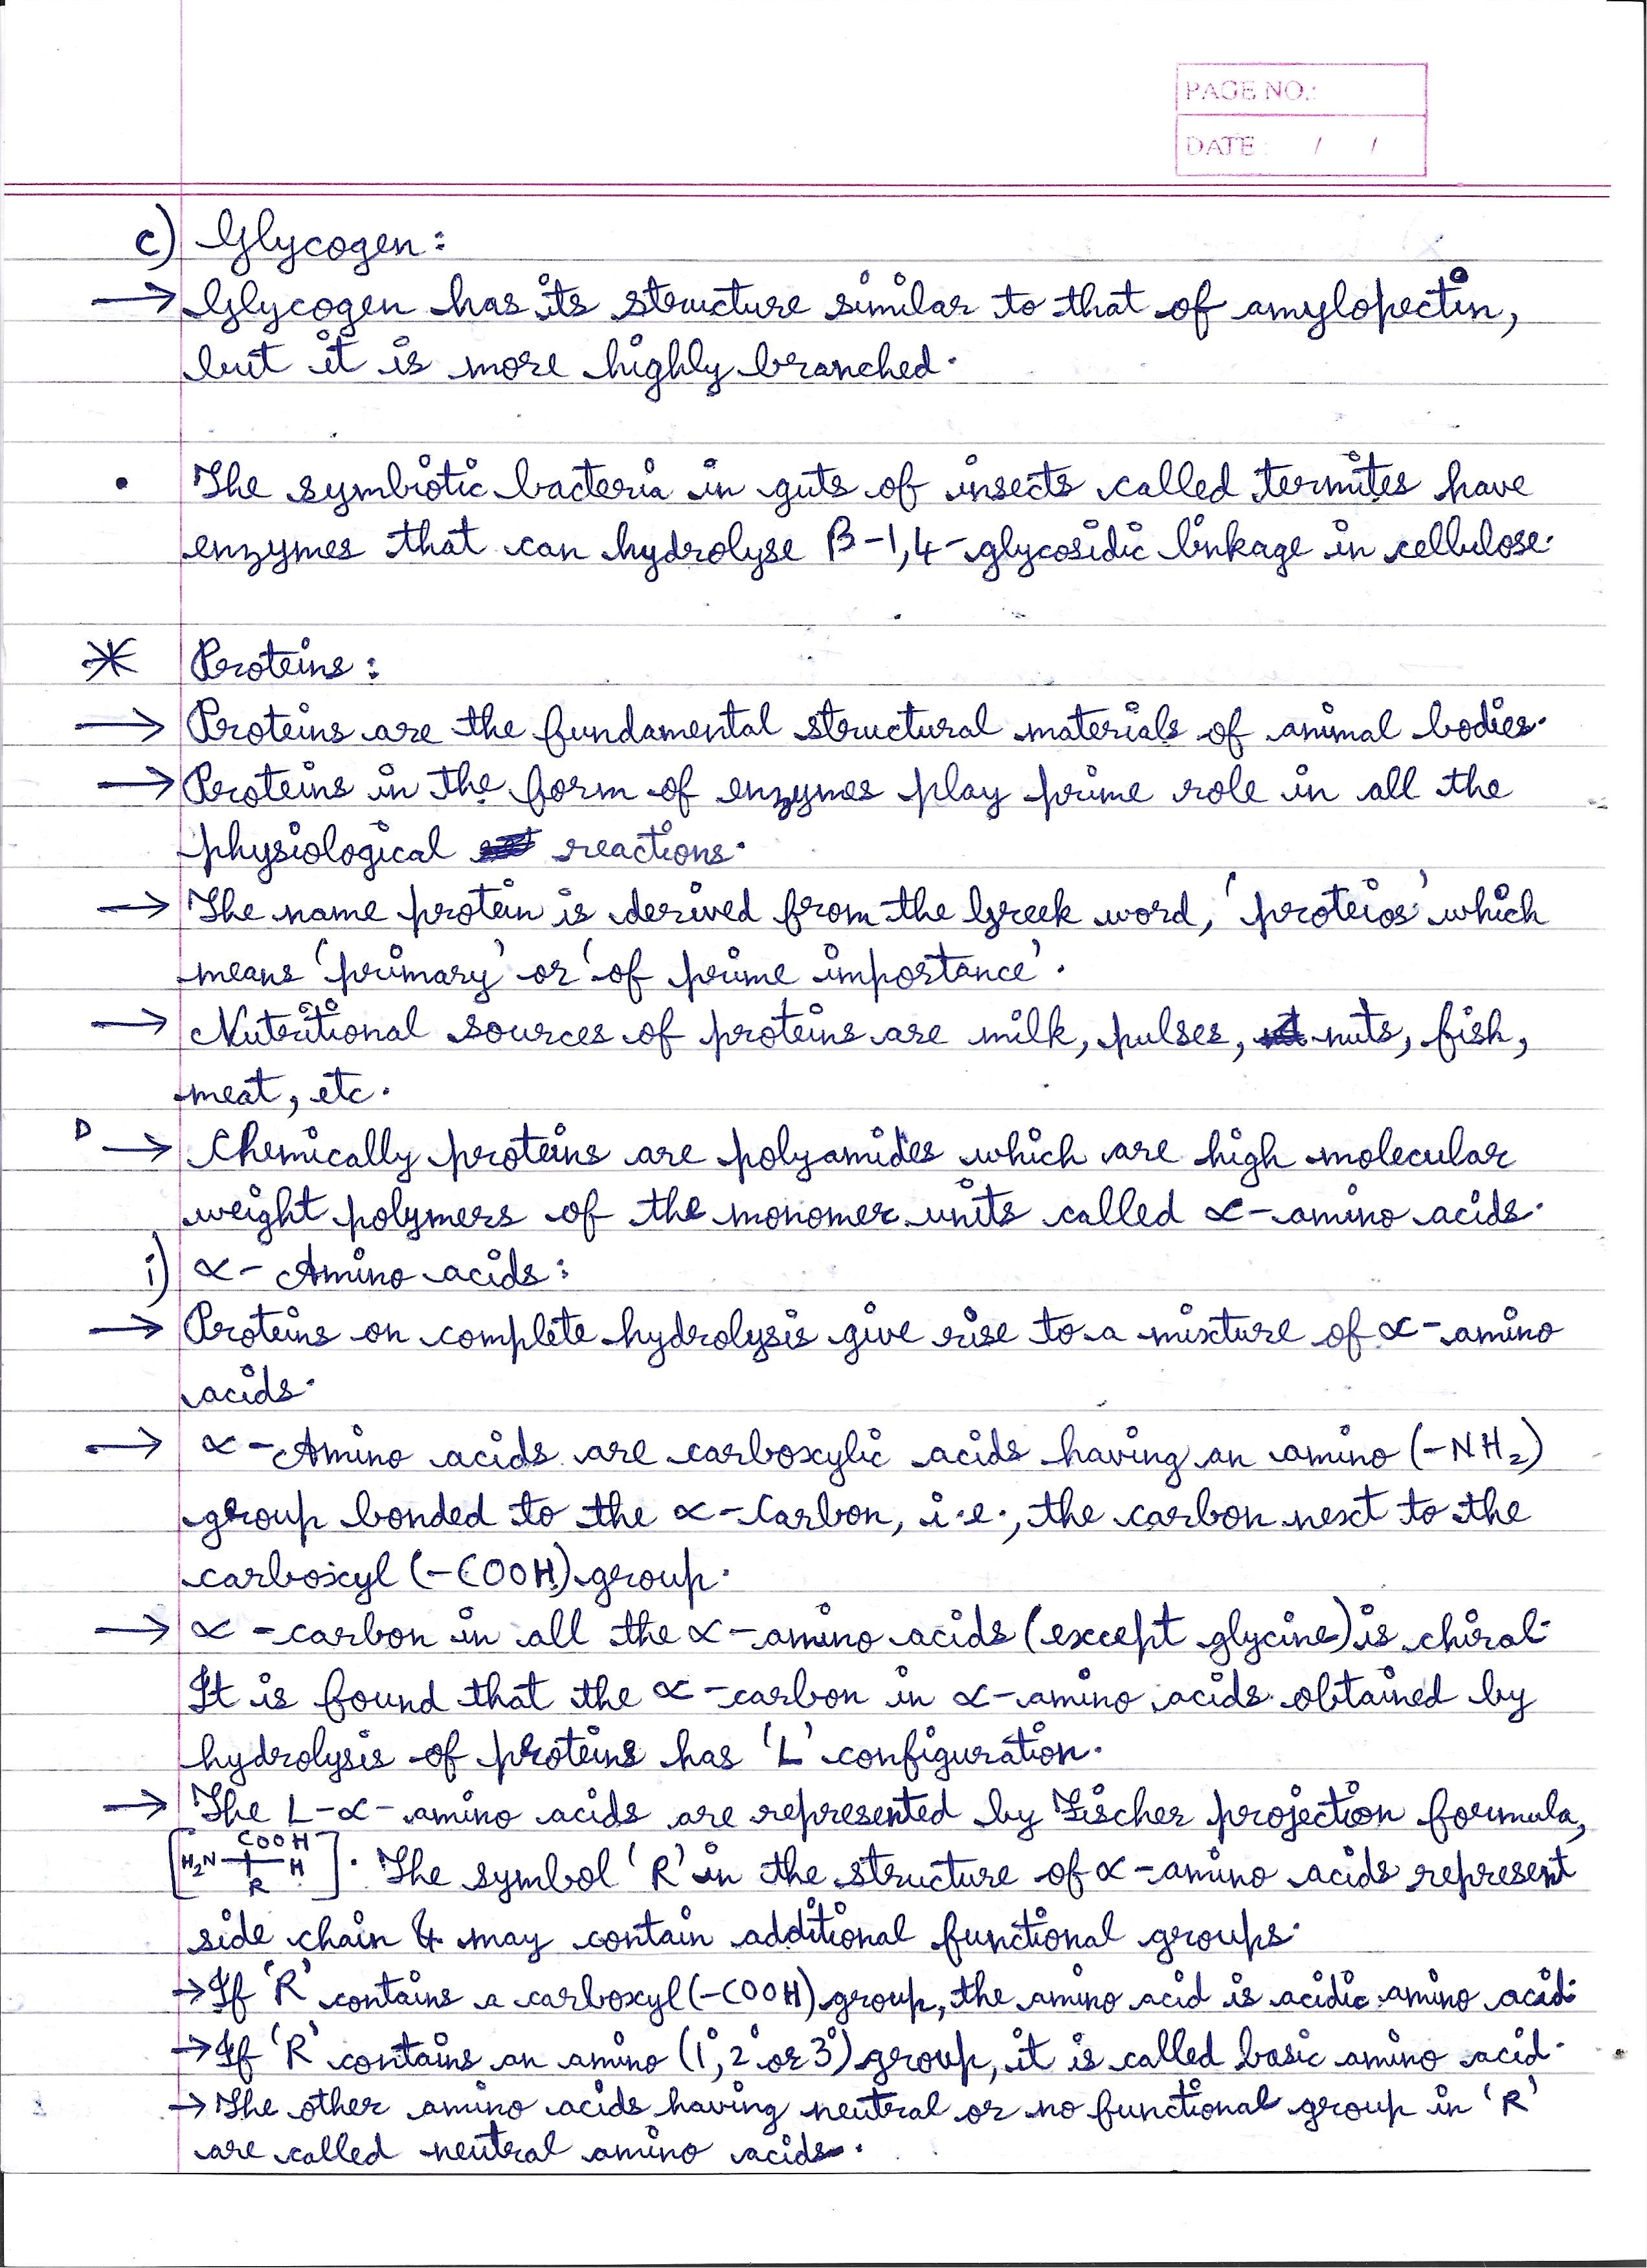 PAGE NO.:
DATE: / /
c) Glycogen:
→ Glycogen has its structure similar to that of amylopectin,
but it is more highly branched.
• The symbiotic bacteria in guts of insects called termites have
enzymes that can hydrolyse β-1,4-glycosidic linkage in cellulose.
* Proteins:
→ Proteins are the fundamental structural materials of animal bodies.
→ Proteins in the form of enzymes play prime role in all the
physiological reactions.
→ The name protein is derived from the Greek word, 'proteios' which
means 'primary' or 'of prime importance'.
→ Nutritional sources of proteins are milk, pulses, nuts, fish,
meat, etc.
D → Chemically proteins are polyamides which are high molecular
weight polymers of the monomer units called α-amino acids.
i) α-Amino acids:
→ Proteins on complete hydrolysis give rise to a mixture of α-amino
acids.
→ α-Amino acids are carboxylic acids having an amino (-NH₂)
group bonded to the α-Carbon, i.e., the carbon next to the
carboxyl (-COOH) group.
→ α-carbon in all the α-amino acids (except glycine) is chiral.
It is found that the α-carbon in α-amino acids obtained by
hydrolysis of proteins has 'L' configuration.
→ The L-α-amino acids are represented by Fischer projection formula,
COOH
[H₂N H]. The symbol 'R' in the structure of α-amino acids represent
R
side chain & may contain additional functional groups.
→ If 'R' contains a carboxyl (-COOH) group, the amino acid is acidic amino acid.
→ If 'R' contains an amino (1°, 2° or 3°) group, it is called basic amino acid.
→ The other amino acids having neutral or no functional group in 'R'
are called neutral amino acids.